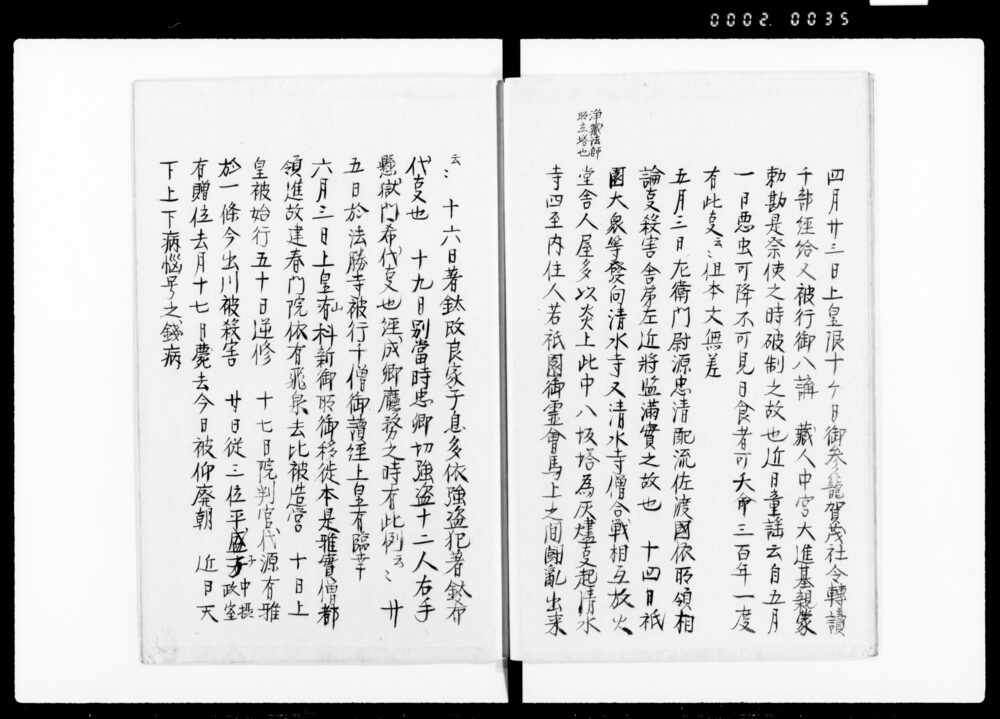 0002.0035
浄蔵法師
所立塔也
四月廿三日上皇限十ケ日御参籠賀茂社令轉讀
千部経給又被行御八講　藏人中宮大進基親蒙
勅勘是祭使之時破制之故也近日童謡云自五月
一日悪虫可降不可見日食者可夭命三百年一度
有此㕝云〻但本文無差
五月三日左衛門尉源忠清配流佐渡國依所領相
論㕝殺害舎弟左近將監満實之故也　十四日祇
園大衆等發向清水寺又清水寺僧合戰相互放火
堂舎人屋多以炎上此中八坂塔為灰燼㕝起清水
寺四至内住人若祇園御霊會馬上之間闘乱出来
云〻　十六日著鈦政良家子息多依強盗犯著鈦希
代㕝也　十九日別當時忠卿切強盗十二人右手
懸獄門希代㕝也経成卿廳務之時有此例云〻　廿
五日於法勝寺被行千僧御讀経上皇有臨幸
六月三日上皇有山科新御所御移徙本是雅實僧都
領進故建春門院依有飛泉去比被造営　十日上
皇被始行五十日逆修　十七日院判官代源有雅
於一條今出川被殺害　廿日従三位平盛子中摂政室
有贈位去月十七日薨去今日被仰廃朝　近日天
下上下病悩号之錢病